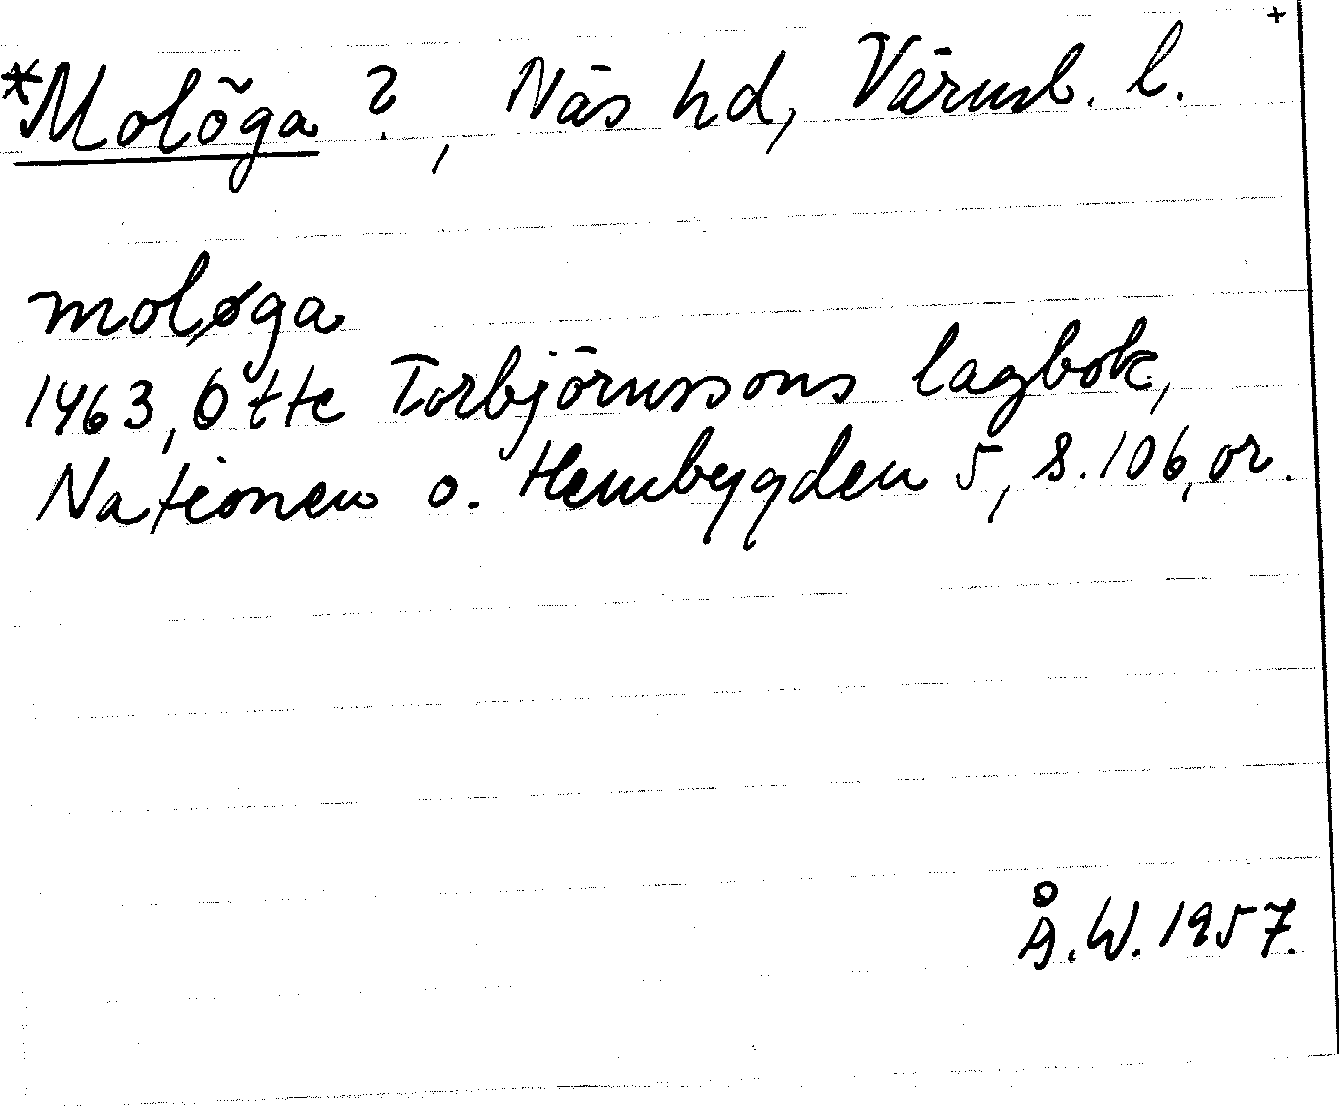 +
*Molöga ?, Näs hd, Värml. l.
moløga
1463, Otte Torbjörnssons lagbok,
Nationen o. Hembygden 5, s. 106, or.
Å.W. 1957.